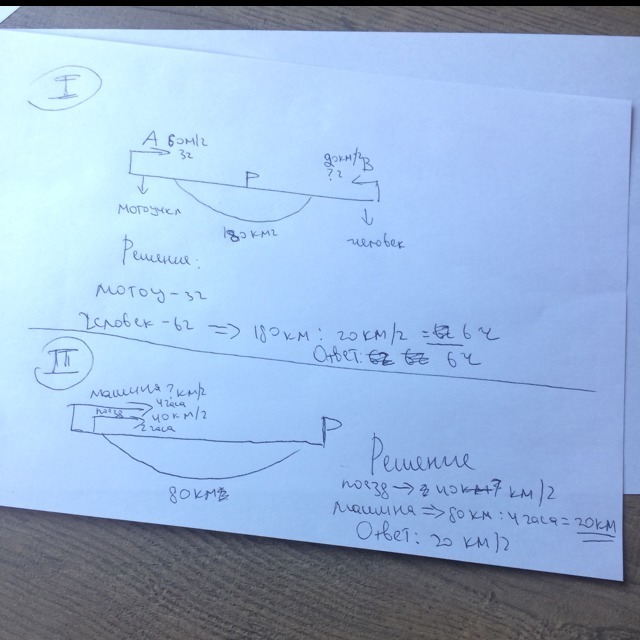 I
A 60м/2
32
20км/2 B
?2
P
мотоцикл
180км2
человек
Решение:
мотоц-32
Человек-62 => 180км: 20км/2 = 6ч
Ответ: 6ч
II
машина ?км/2
4часа
поезд 40км/2
2часа
P
80км
Решение
поезд → 40 км/2
машина => 80км: 4часа = 20км
Ответ: 20 км/2